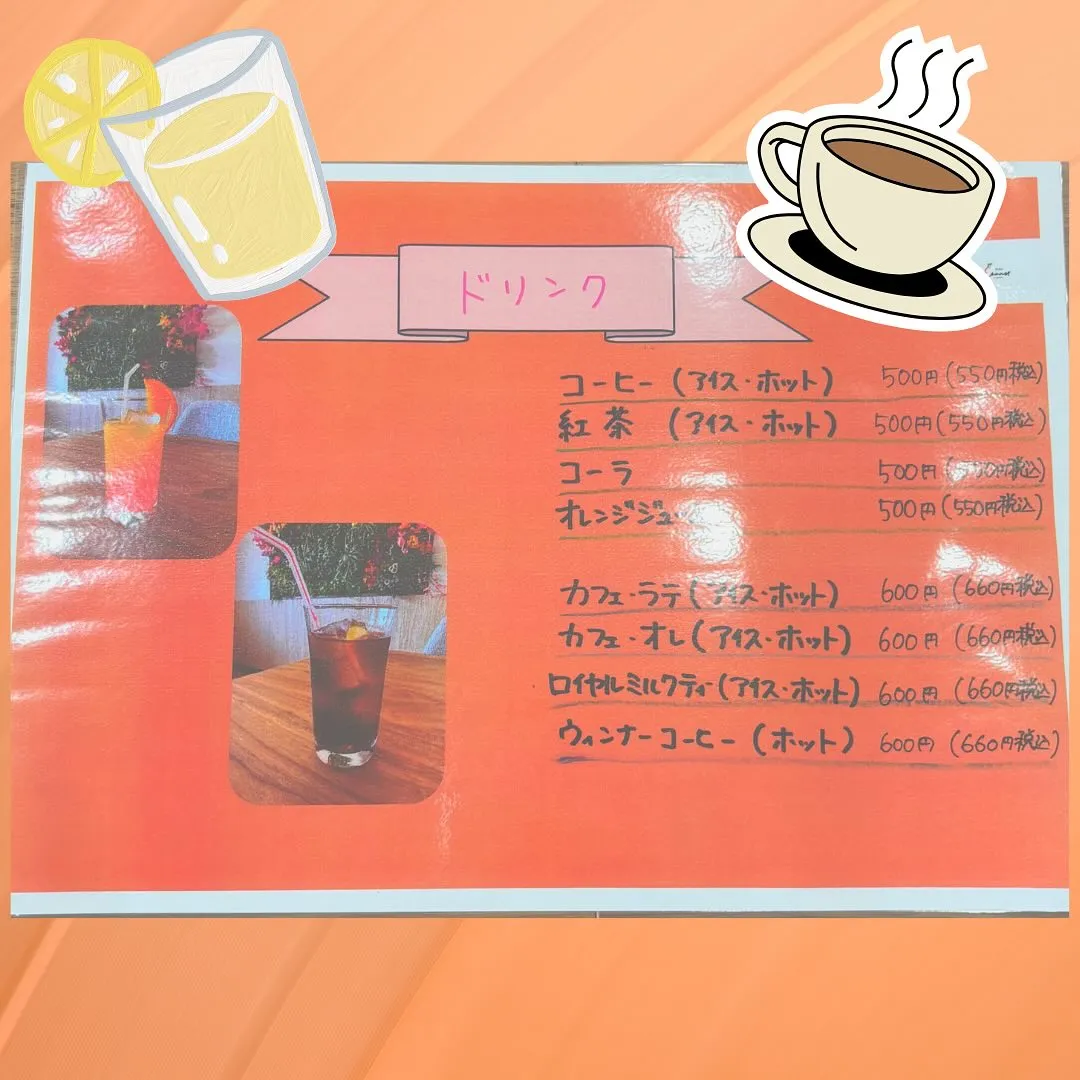 ドリンク
コーヒー (アイス・ホット) 500円 (550円税込)
紅茶 (アイス・ホット) 500円 (550円税込)
コーラ 500円 (550円税込)
オレンジジュー 500円 (550円税込)
カフェ・ラテ (アイス・ホット) 600円 (660円税込)
カフェ・オレ (アイス・ホット) 600円 (660円税込)
ロイヤルミルクティ (アイス・ホット) 600円 (660円税込)
ウィンナーコーヒー (ホット) 600円 (660円税込)